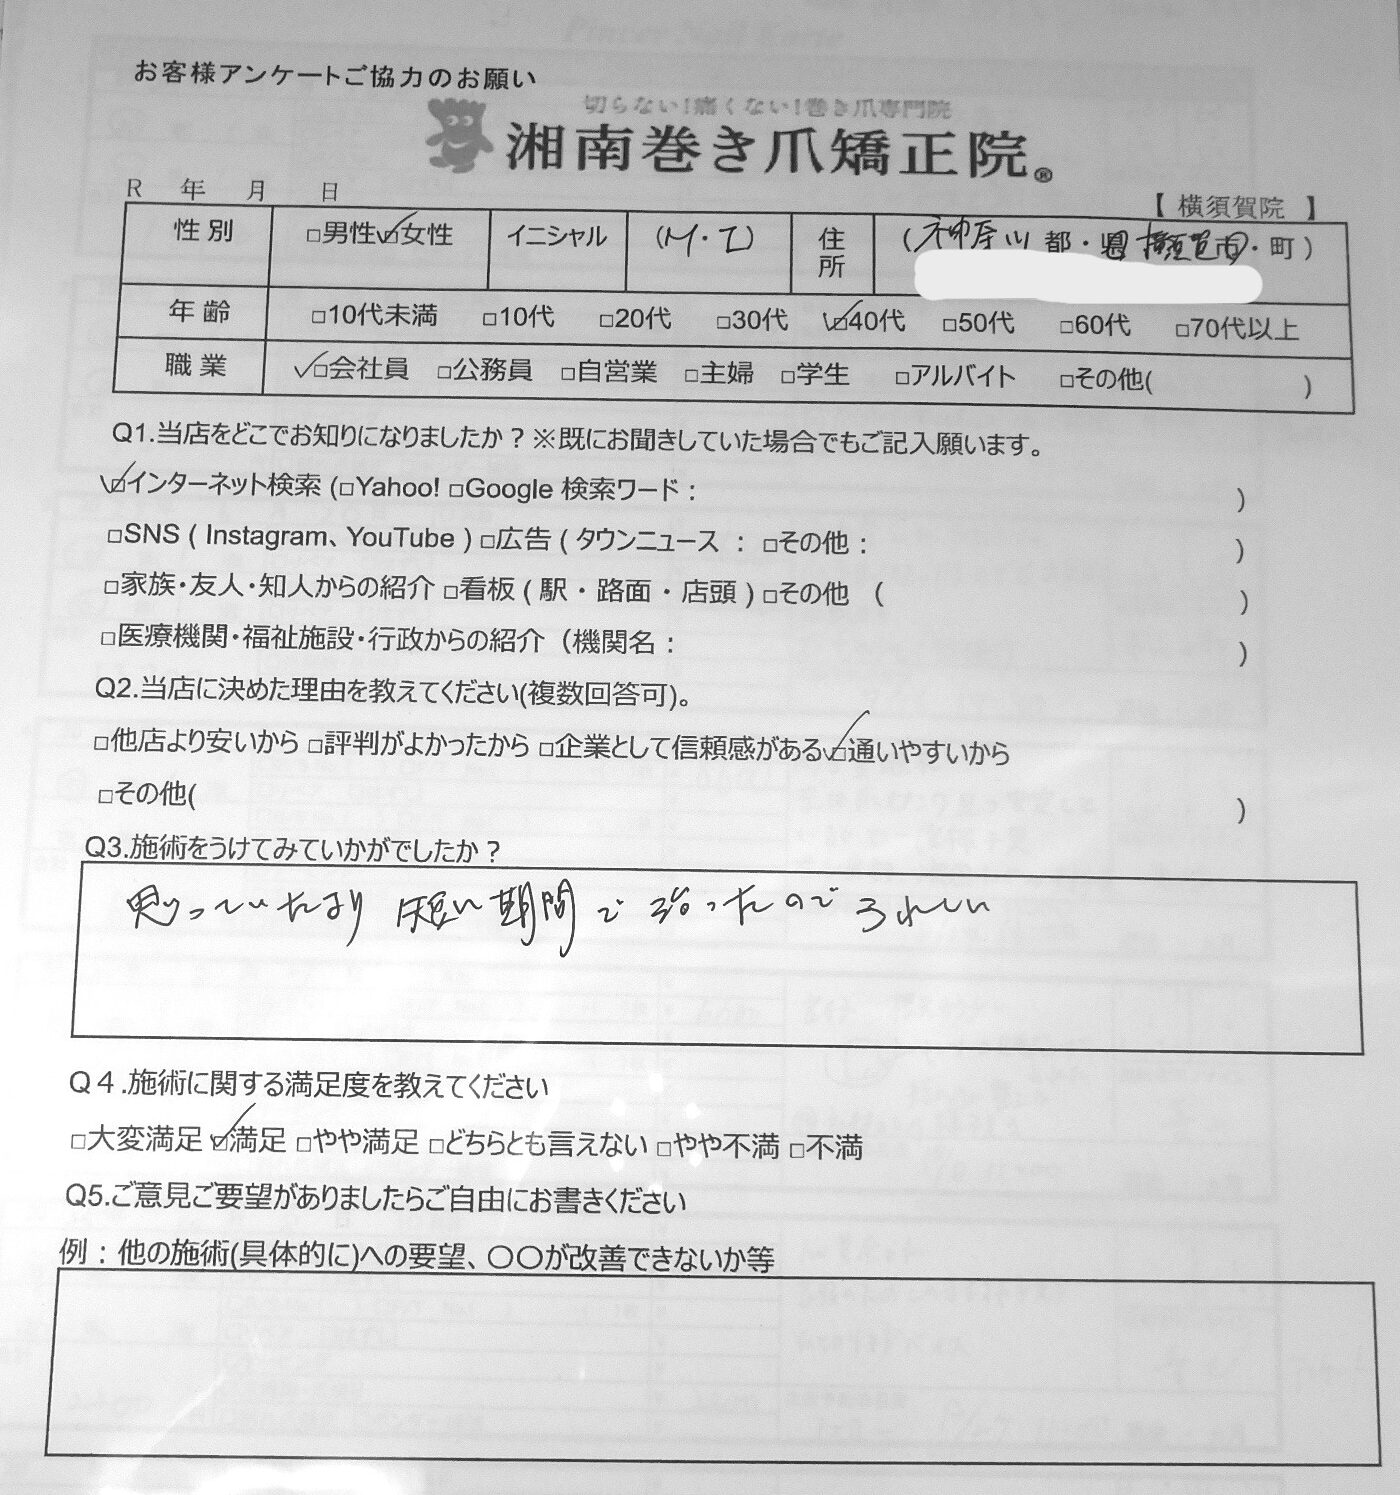 お客様アンケートご協力のお願い
切らない!痛くない!巻き爪専門院
湘南巻き爪矯正院®
R 年 月 日
【 横須賀院 】
性別 □男性 ☑女性 イニシャル (M・I) 住所 (神奈川 都・県 横須賀 市・町)
年齢 □10代未満 □10代 □20代 □30代 ☑40代 □50代 □60代 □70代以上
職業 ☑会社員 □公務員 □自営業 □主婦 □学生 □アルバイト □その他( )
Q1.当店をどこでお知りになりましたか?※既にお聞きしていた場合でもご記入願います。
☑インターネット検索 (□Yahoo! □Google 検索ワード: )
□SNS ( Instagram、YouTube ) □広告 ( タウンニュース : □その他: )
□家族・友人・知人からの紹介 □看板 ( 駅・路面・店頭 ) □その他 ( )
□医療機関・福祉施設・行政からの紹介 (機関名: )
Q2.当店に決めた理由を教えてください(複数回答可)。
□他店より安いから □評判がよかったから □企業として信頼感がある ☑通いやすいから
□その他( )
Q3.施術をうけてみていかがでしたか?
思っていたより 短い期間で治ったので うれしい
Q4.施術に関する満足度を教えてください
□大変満足 ☑満足 □やや満足 □どちらとも言えない □やや不満 □不満
Q5.ご意見ご要望がありましたらご自由にお書きください
例:他の施術(具体的に)への要望、〇〇が改善できないか等